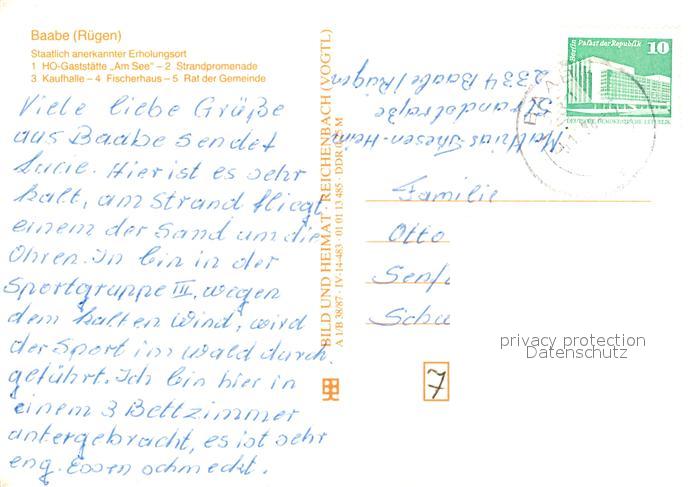 Baabe (Rügen)
Staatlich anerkannter Erholungsort
1 HO-Gaststätte „Am See“ – 2 Strandpromenade
3 Kaufhalle – 4 Fischerhaus – 5 Rat der Gemeinde
Viele liebe Grüße
aus Baabe sendet
Lucie. Hier ist es sehr
kalt, am Strand fliegt
einem der Sand um die
Ohren. In bin in der
Sportgruppe III, wegen
dem kalten Wind, wird
der Sport im Wald durch
geführt. Ich bin hier in
einem 3 Bettzimmer
untergebracht, es ist sehr
eng. Essen schmeckt.
BILD UND HEIMAT · REICHENBACH (VOGTL)
A 1/B 38/87 · IV-14-483 · 01 01 13 485 · DDR
Matthias-Thesen-Heim
Strandstraße
2334 Baabe/Rügen
Berlin Palast der Republik
10
DEUTSCHE DEMOKRATISCHE REPUBLIK
Familie
Otto
Senf
Schu
privacy protection
Datenschutz
7